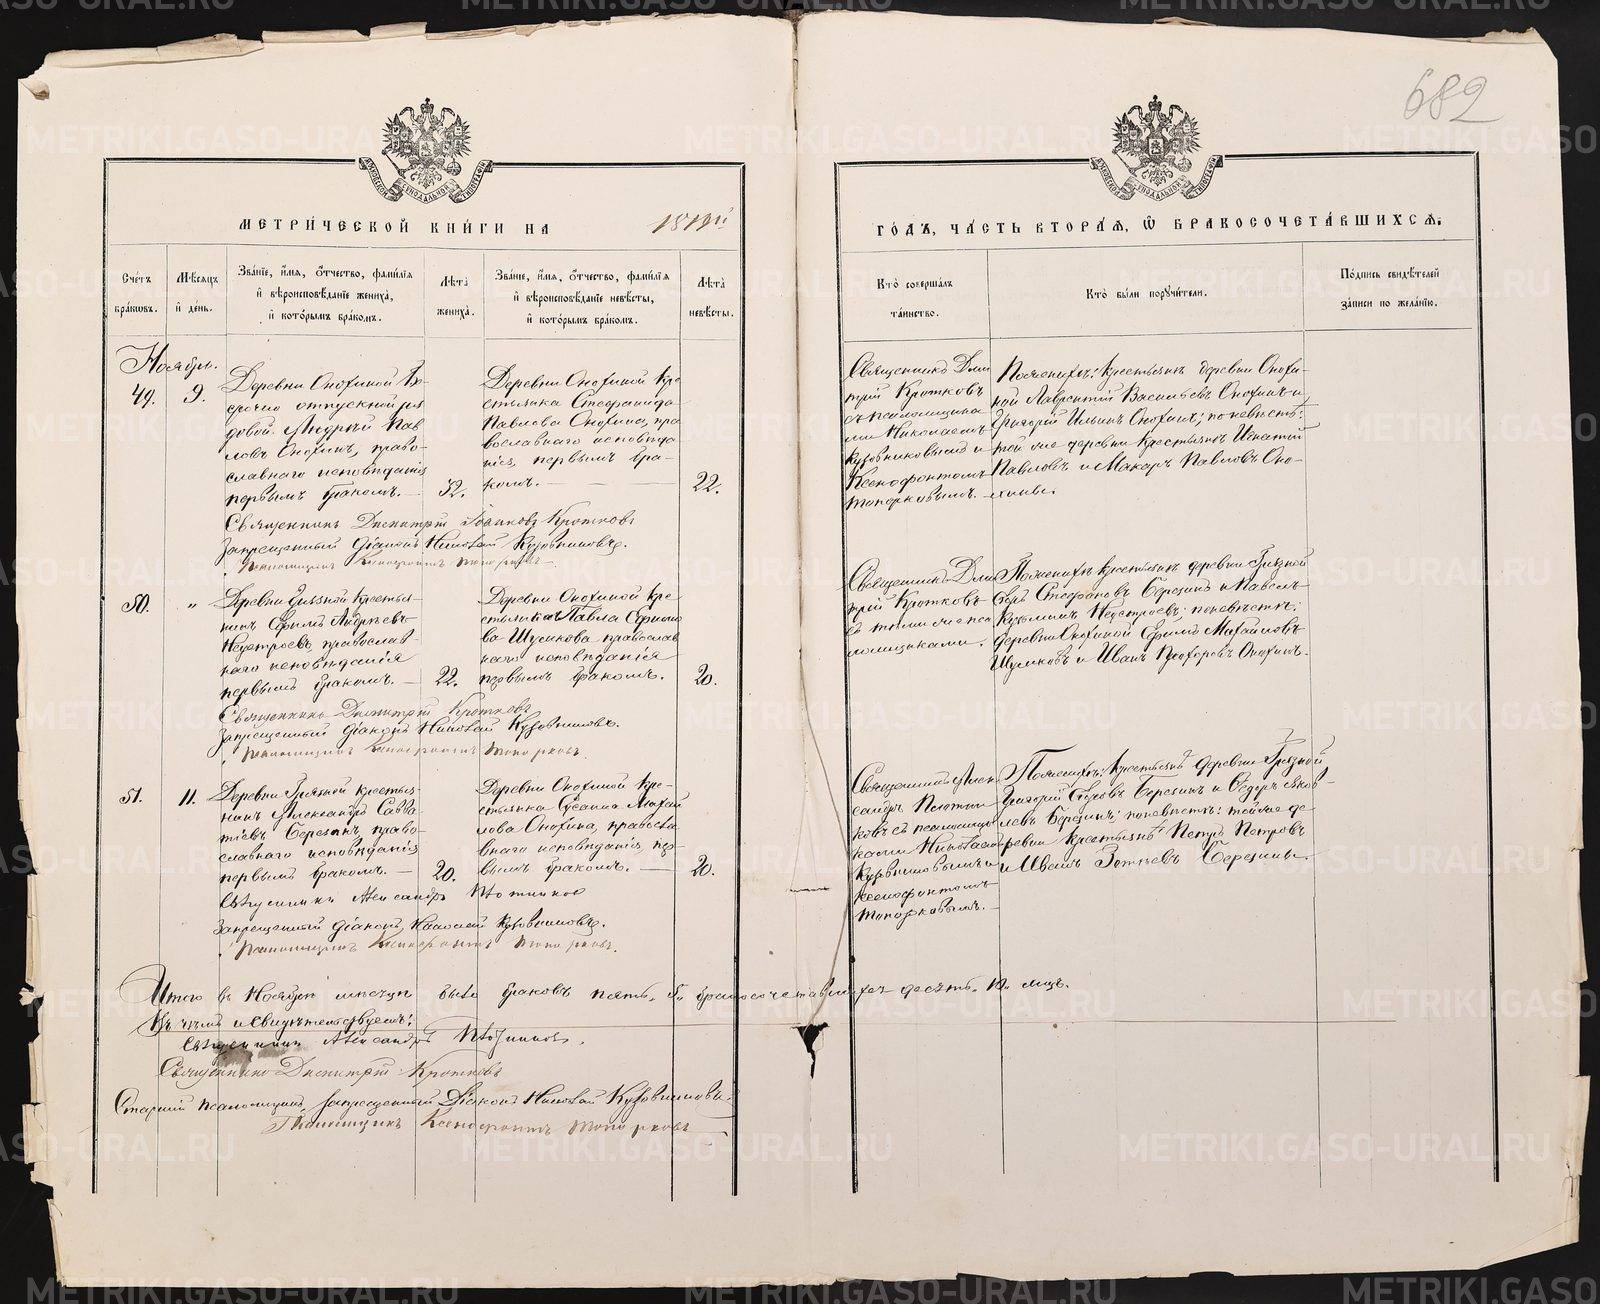 682
МЕТРИ́ЧЕСКОЙ КНИ́ГИ НА
ГО́ДЪ, ЧА́СТЬ ВТОРА́Я, Ѡ БРАКОСОЧЕТА́ВШИХСѦ.
Сче́тъ бра́ковъ.
Мѣ́сяцъ и де́нь.
Зва́нїе, и́мя, о́тчество, фами́лїя
и вѣроисповѣ́данїе жениха́,
и кото́рымъ бра́комъ.
Лѣта̀ жениха̀.
Зва́нїе, и́мя, о́тчество, фами́лїя
и вѣроисповѣ́данїе невѣ́сты,
и кото́рымъ бра́комъ.
Лѣта̀ невѣ́сты.
Кто̀ соверша́лъ
та́инство.
Кто̀ бы́ли поручи́тели.
По́дпись свидѣ́телей
за́писи по жела́нїю.
Ноябрь.
49.
9.
Деревни Онохиной
срочно отпускной ря
довой Андрей Пав
ловъ Онохинъ, право-
славнаго исповѣданія
первымъ бракомъ.—
32.
Деревни Онохиной Кре
стьянка Стефанида
Павлова Онохина, пра
вославнаго исповѣда
нія, первымъ бра-
комъ.—
22.
Священникъ Дми
трій Кротковъ
съ псаломщика
ми Николаемъ
Кузовниковымъ и
Ксенофонтомъ
Топорковымъ.—
По женихѣ: Крестьяне деревни Онохи-
ной Лаврентій Васильевъ Онохинъ и
Григорій Ильинъ Онохинъ; по невѣстѣ:
той же деревни Крестьяне Игнатій
Павловъ и Макаръ Павловъ Оно-
хины.
Священникъ Димитрій Іоанновъ Кротковъ
Запрещенный діаконъ Николай Кузовниковъ.
Псаломщикъ Ксенофонтъ Топорковъ.
50.
"
Деревни Грязной Крестья-
нинъ Ефимъ Андреевъ
Неустроевъ, православ-
наго исповѣданія
первымъ бракомъ.—
22.
Деревни Онохиной Кре
стьянка Павла Ефимо
ва Шумкова православ
наго исповѣданія
первымъ бракомъ.
20.
Священникъ Дми
трій Кротковъ
съ тѣми же пса
ломщиками.
По женихѣ Крестьяне деревни Грязной
Стефановъ Березинъ и Павелъ
Кузьминъ Неустроевъ; по невѣстѣ:
деревни Онохиной Ефимъ Михайловъ
Шумковъ и Иванъ Прохоровъ Онохинъ.
Священникъ Димитрій Кротковъ
Запрещенный діаконъ Николай Кузовниковъ.
Псаломщикъ Ксенофонтъ Топорковъ.
51.
11.
Деревни Грязной Крестья
нинъ Александръ Савва
тіевъ Березинъ, право-
славнаго исповѣданія
первымъ бракомъ.—
20.
Деревни Онохиной Кре-
стьянка Михай
лова Онохина, правосла
внаго исповѣданія, пер-
вымъ бракомъ.—
20.
Священникъ Алек
сандръ Плотни
ковъ съ псаломщи
ками Николаемъ
Кузовниковымъ и
Ксенофонтомъ
Топорковымъ.—
По женихѣ: Крестьяне деревни Грязной
Григорій Березинъ и Ѳедоръ Яков-
левъ Березинъ; по невѣстѣ: той же де
ревни Крестьяне Петръ Петровъ
и Иванъ Березины.
Священникъ Александръ Плотниковъ
Запрещенный діаконъ Николай Кузовниковъ.
Псаломщикъ Ксенофонтъ Топорковъ.
Итого въ Ноябрѣ мѣсяцѣ было браковъ пять, 5. бракосочетавшихся десять, 10. лицъ.
Въ чемъ и свидѣтельствуемъ:
Священникъ Александръ Плотниковъ.
Священникъ Димитрій Кротковъ
Старшій псаломщикъ, запрещенный Діаконъ Николай Кузовниковъ.
Псаломщикъ Ксенофонтъ Топорковъ
METRIKI.GASO-URAL.RU